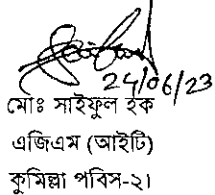 24/06/23
মোঃ সাইফুল হক
এজিএম (আইটি)
কুমিল্লা পবিস-২।